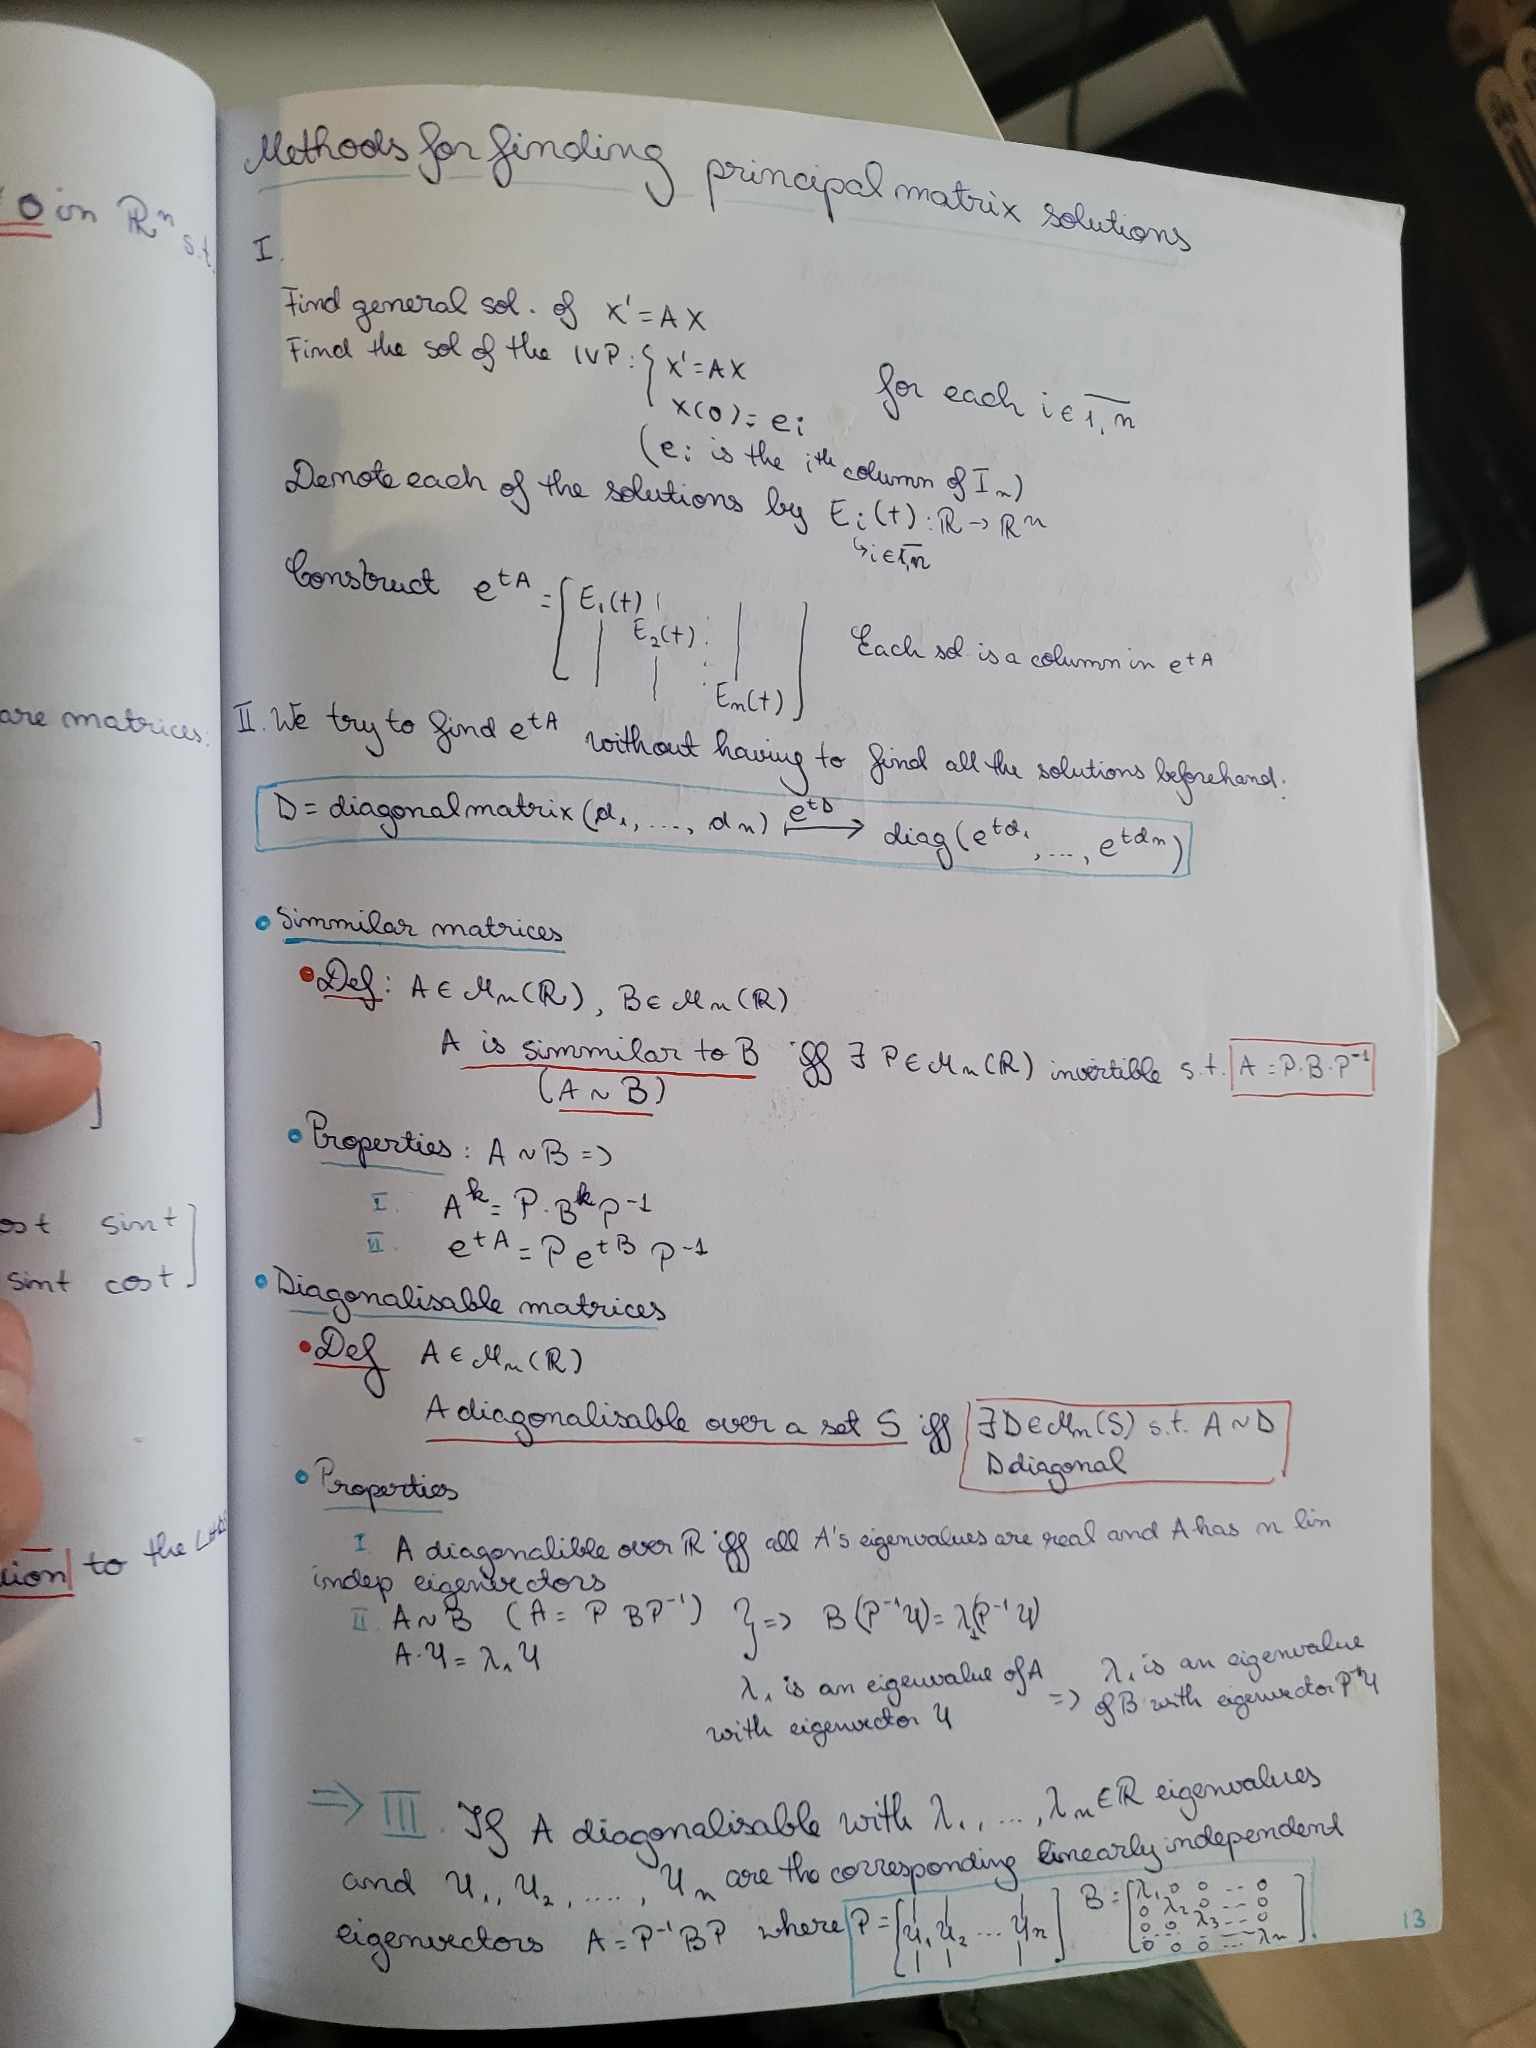 0 in ℝⁿ s.t.
are matrices.
sint
sint cost
to the
Methods for finding principal matrix solutions
I.
Find general sol. of X' = AX
Find the sol of the IVP: { X' = AX
X(0) = eᵢ
for each i ∈ 1,n
(eᵢ is the iᵗʰ column of Iₙ)
Denote each of the solutions by Eᵢ(t) : ℝ → ℝⁿ
↳ i ∈ 1,n
Construct e^tA = [ E₁(t) E₂(t) ... Eₙ(t) ] Each sol is a column in e^tA
II. We try to find e^tA without having to find all the solutions beforehand.
D = diagonal matrix (d₁, ..., dₙ) ⟼ e^tD diag(e^td₁, ..., e^tdₙ)
• Simmilar matrices
• Def: A ∈ Mₙ(ℝ), B ∈ Mₙ(ℝ)
A is simmilar to B iff ∃ P ∈ Mₙ(ℝ) invertible s.t. A = P·B·P⁻¹
(A ~ B)
• Properties: A ~ B =>
I. Aᵏ = P·BᵏP⁻¹
II. e^tA = P e^tB P⁻¹
• Diagonalisable matrices
• Def A ∈ Mₙ(ℝ)
A diagonalisable over a set S iff ∃ D ∈ Mₙ(S) s.t. A ~ D
D diagonal
• Properties
I. A diagonalible over ℝ iff all A's eigenvalues are real and A has n lin
indep eigenvectors
II. A ~ B (A = P BP⁻¹) } => B(P⁻¹u) = λ₁(P⁻¹u)
A·u = λ₁u
λ₁ is an eigenvalue of A => λ₁ is an eigenvalue
with eigenvector u of B with eigenvector P⁻¹u
=> III. If A diagonalisable with λ₁, ..., λₙ ∈ ℝ eigenvalues
and u₁, u₂, ....., uₙ are the corresponding linearly independent
eigenvectors A = P⁻¹BP where P = [ u₁ u₂ ... uₙ ] B = [ λ₁ 0 0 ... 0
0 λ₂ 0 ... 0
0 0 λ₃ ... 0
0 0 0 ... λₙ ]
13